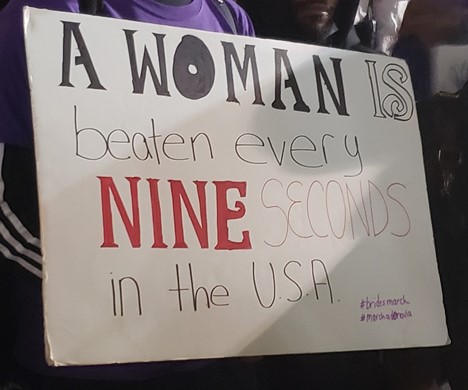 A WOMAN IS
beaten every
NINE SECONDS
in the U.S.A.
#bridesmarch